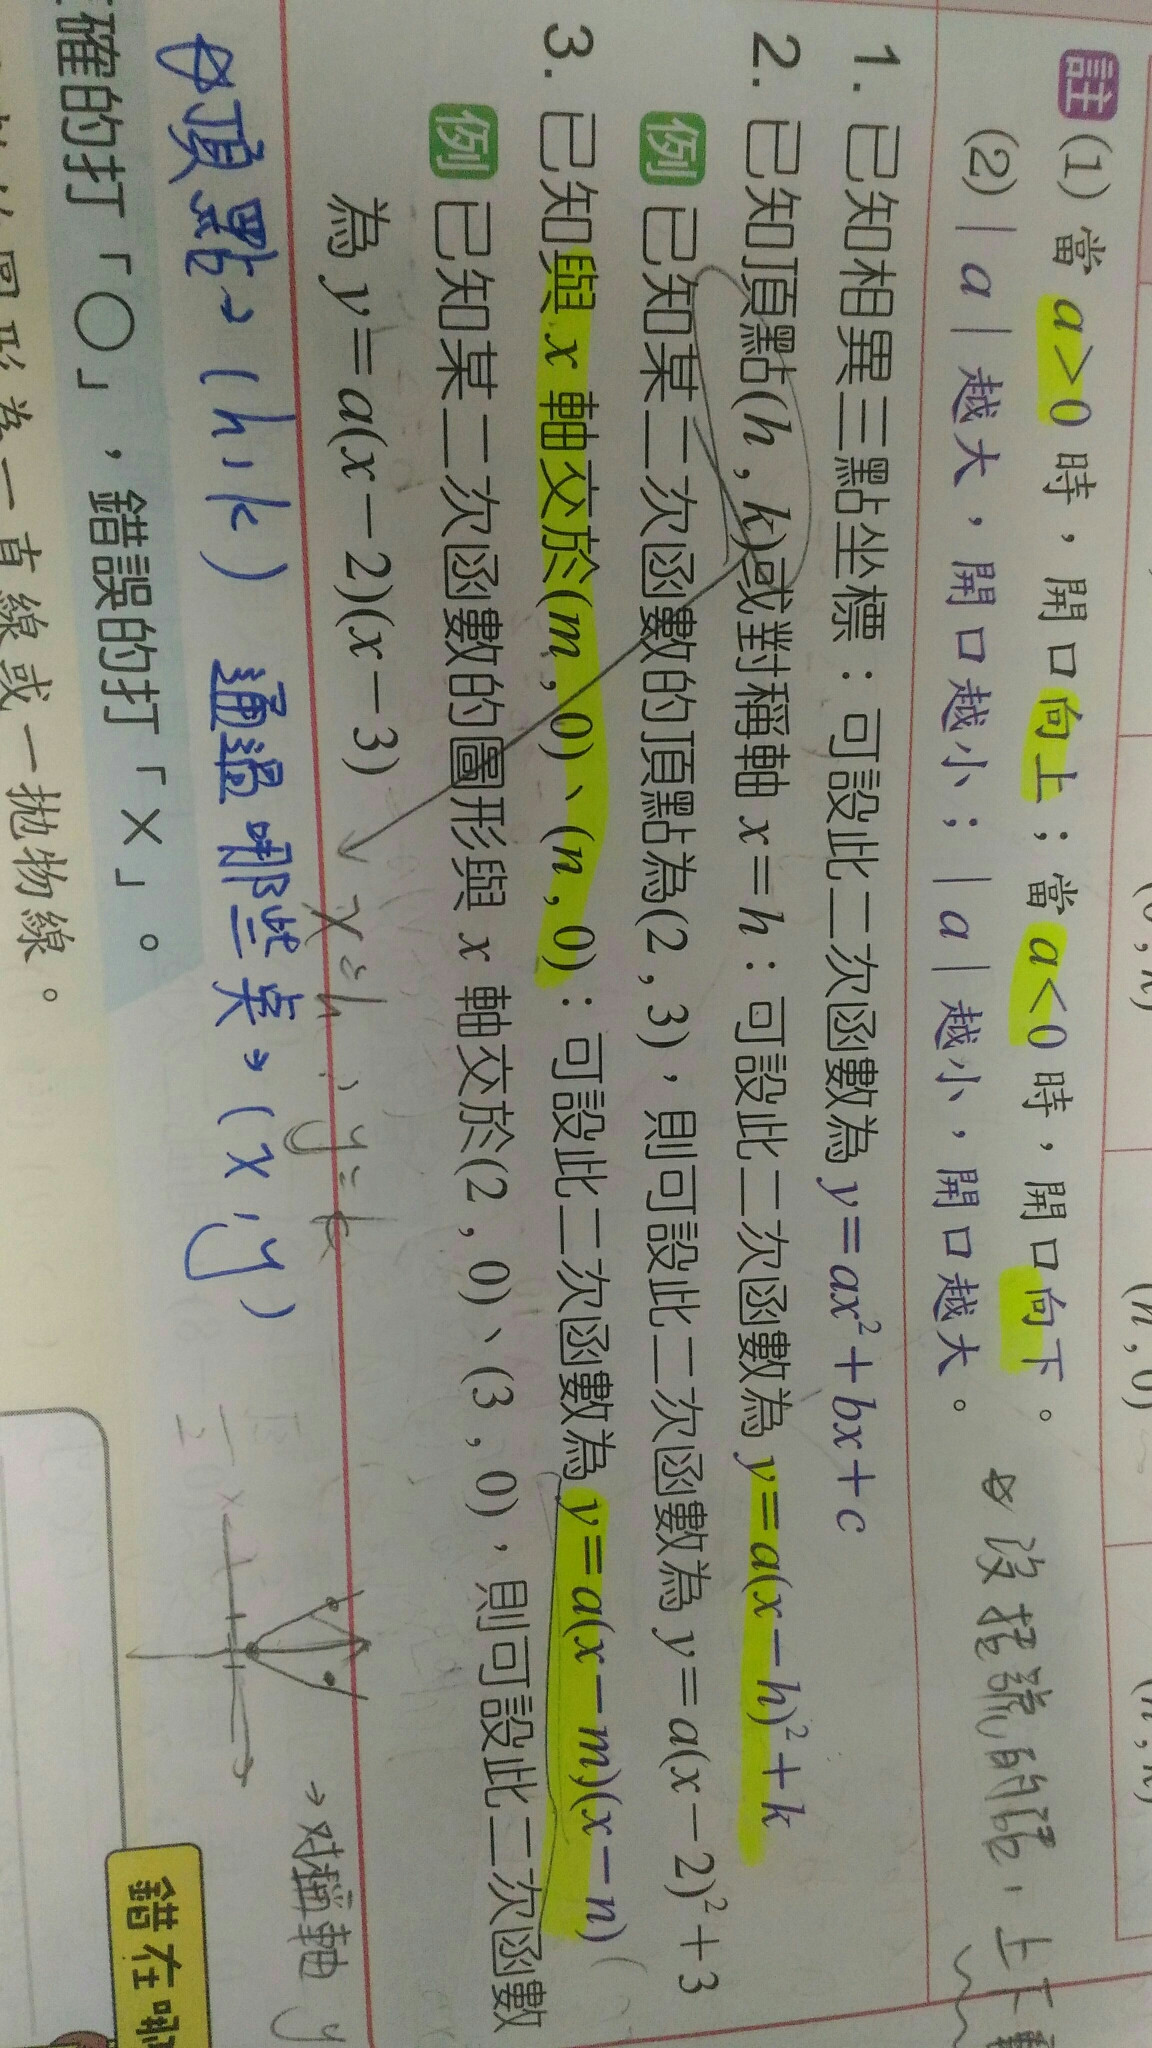 註 (1) 當 a>0 時，開口向上；當 a<0 時，開口向下。
(2) | a | 越大，開口越小；| a | 越小，開口越大。
沒括號的話，上下
1. 已知相異三點坐標：可設此二次函數為 y=ax²+bx+c
2. 已知頂點(h , k)或對稱軸 x=h：可設此二次函數為 y=a(x−h)²+k
例 已知某二次函數的頂點為(2 , 3)，則可設此二次函數為 y=a(x−2)²+3
3. 已知與 x 軸交於(m , 0)、(n , 0)：可設此二次函數為 y=a(x−m)(x−n)
例 已知某二次函數的圖形與 x 軸交於(2 , 0)、(3 , 0)，則可設此二次函數
為 y=a(x−2)(x−3)
x=h , y=k
→対稱軸 y
頂點→(h,k) 通過哪些点→(x,y)
確的打「○」，錯誤的打「×」。
圖形為一直線或一拋物線。
錯在哪